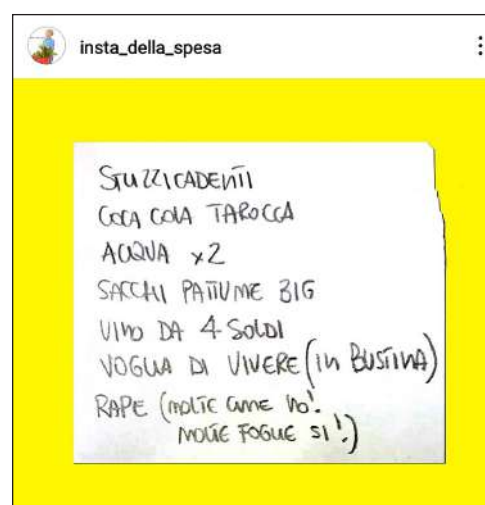 insta_della_spesa
STUZZICADENTI
COCA COLA TAROCCA
ACQUA x2
SACCHI PATTUME BIG
VINO DA 4 SOLDI
VOGLIA DI VIVERE (IN BUSTINA)
RAPE (MOLTE CIME NO!
MOLTE FOGLIE SI!)